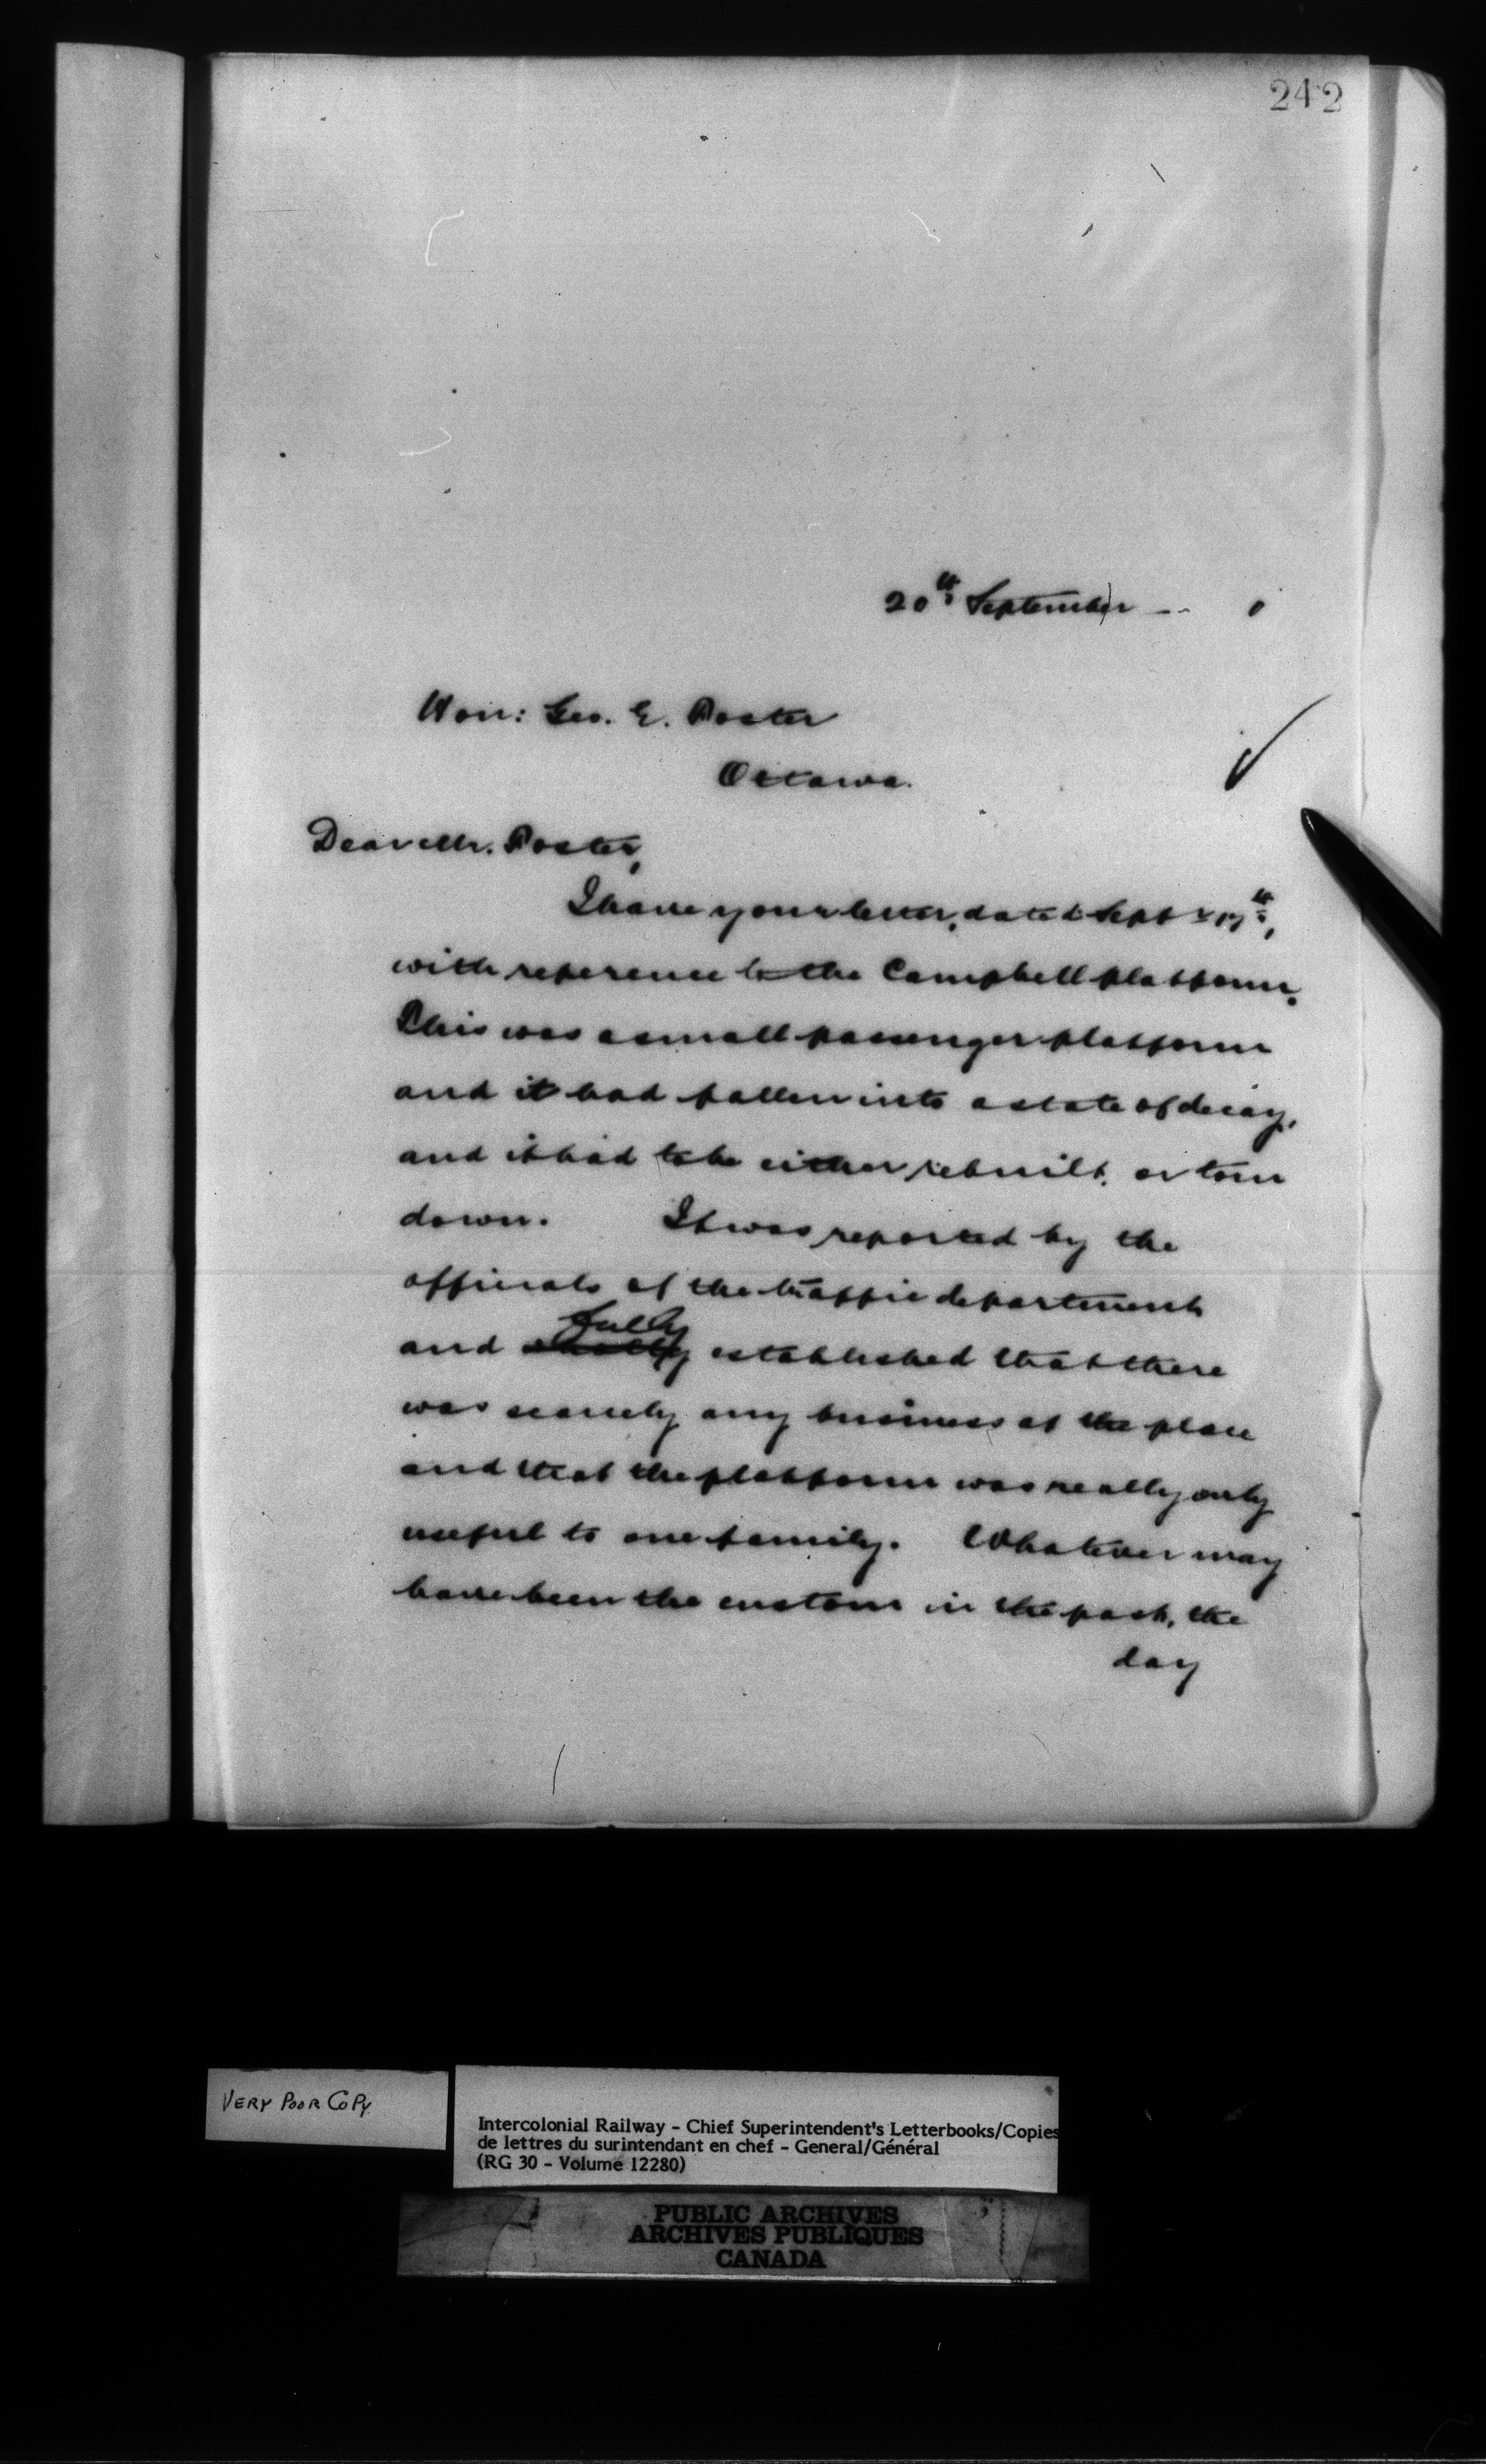 242
20th September
Hon: Geo. E. Foster
Ottawa.
Dear Mr. Foster,
I have your letter, dated Sept 17th,
with reference to the Campbell platform.
This was a small passenger platform
and it had fallen into a state of decay,
and it had to be either rebuilt, or torn
down. It was reported by the
officials of the traffic department
fully
and established that there
was scarcely any business at the place
and that the platform was really only
useful to one family. Whatever may
have been the custom in the past, the
day
VERY POOR COPY
Intercolonial Railway - Chief Superintendent's Letterbooks/Copies
de lettres du surintendant en chef - General/Général
(RG 30 - Volume 12280)
PUBLIC ARCHIVES
ARCHIVES PUBLIQUES
CANADA